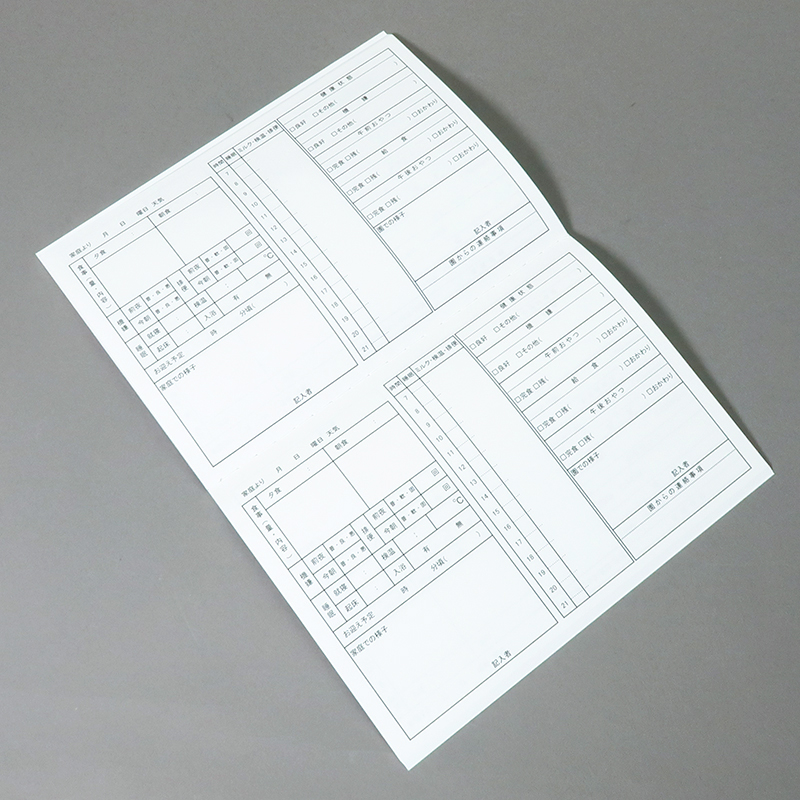 家庭より 月 日 曜日 天気
食事(量・内容) 夕食 朝食
機嫌 前夜 普・良・悪 排便 前夜 普・軟・固 回
今朝 普・良・悪 今朝 普・軟・固 回
睡眠 就寝 : 検温 : ℃
起床 : 入浴 有 無
お迎え予定 時 分頃( )
家庭での様子
記入者
時間 睡眠 ミルク・検温・排便
7
8
9
10
11
12
13
14
15
16
17
18
19
20
21
健康状態
□良好 □その他( )
機嫌
□良好 □その他( )
午前おやつ
□完食 □残( ) □おかわり
給食
□完食 □残( ) □おかわり
午後おやつ
□完食 □残( ) □おかわり
園での様子
記入者
園からの連絡事項
家庭より 月 日 曜日 天気
食事(量・内容) 夕食 朝食
機嫌 前夜 普・良・悪 排便 前夜 普・軟・固 回
今朝 普・良・悪 今朝 普・軟・固 回
睡眠 就寝 : 検温 : ℃
起床 : 入浴 有 無
お迎え予定 時 分頃( )
家庭での様子
記入者
時間 睡眠 ミルク・検温・排便
7
8
9
10
11
12
13
14
15
16
17
18
19
20
21
健康状態
□良好 □その他( )
機嫌
□良好 □その他( )
午前おやつ
□完食 □残( ) □おかわり
給食
□完食 □残( ) □おかわり
午後おやつ
□完食 □残( ) □おかわり
園での様子
記入者
園からの連絡事項